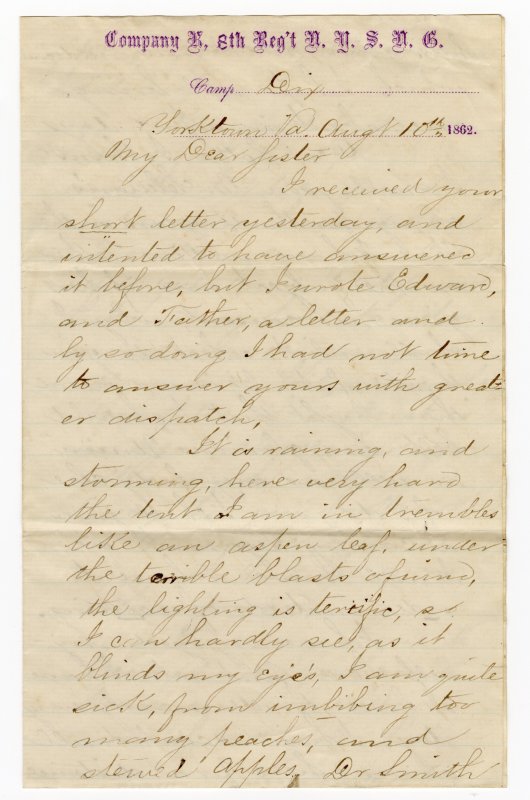 Company K, 8th Reg't N. Y. S. N. G.
Camp Dix
Yorktown Va. Augt 10th 1862.
My Dear Sister
I received your
short letter yesterday, and
intented to have answered
it before, but I wrote Edward,
and Father, a letter and
by so doing I had not time
to answer yours with great-
er dispatch,
It is raining, and
storming, here very hard
the tent I am in trembles
like an aspen leaf, under
the terrible blasts of wind,
the lighting is terific, s
I can hardly see, as it
blinds my eyes, I am quite
sick, from imbibing too
many peaches, and
stewed apples, Dr Smith